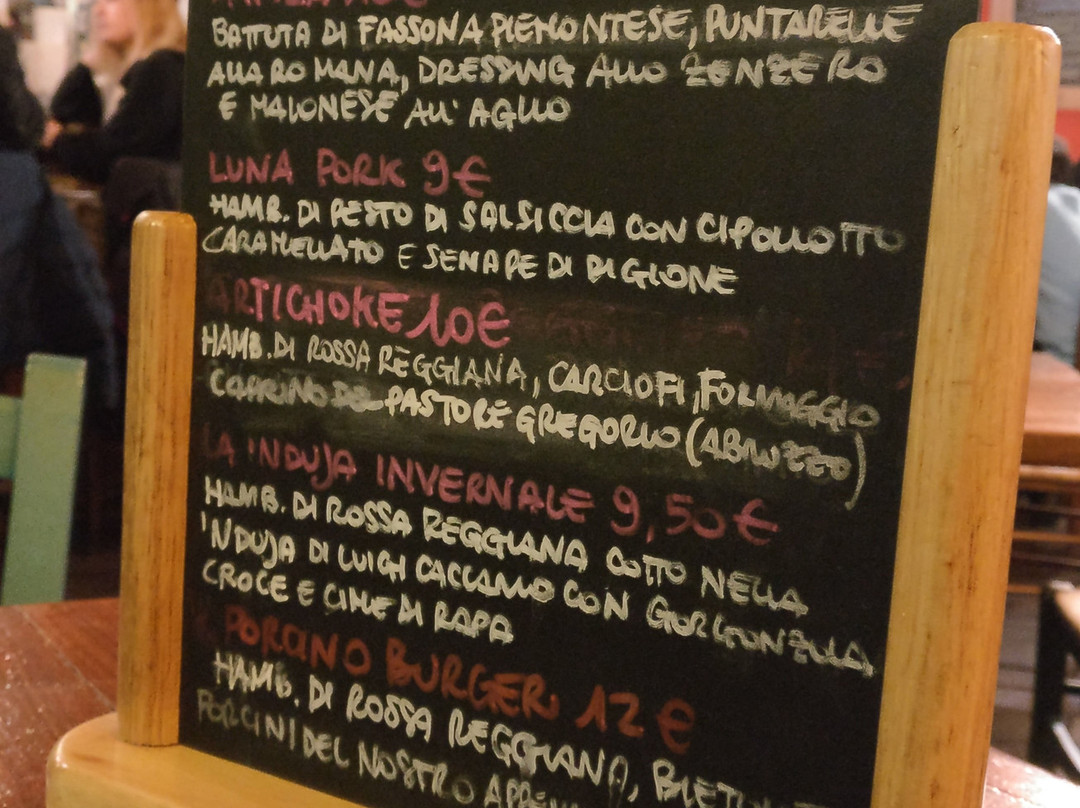 BATTUTA DI FASSONA PIEMONTESE, PUNTARELLE
ALLA ROMANA, DRESSING ALLO ZENZERO
E MAIONESE ALL'AGLIO
LUNA PORK 9€
HAMB. DI PESTO DI SALSICCIA CON CIPOLLOTTO
CARAMELLATO E SENAPE DI DIGIONE
ARTICHOKE 10€
HAMB. DI ROSSA REGGIANA, CARCIOFI, FORMAGGIO
CAPRINO DEL PASTORE GREGORIO (ABRUZZO)
LA 'NDUJA INVERNALE 9,50€
HAMB. DI ROSSA REGGIANA COTTO NELLA
'NDUJA DI LUIGI CACCAMO CON GORGONZOLA,
CROCE E CIME DI RAPA
IL PORCINO BURGER 12€
HAMB. DI ROSSA REGGIANA,
PORCINI DEL NOSTRO